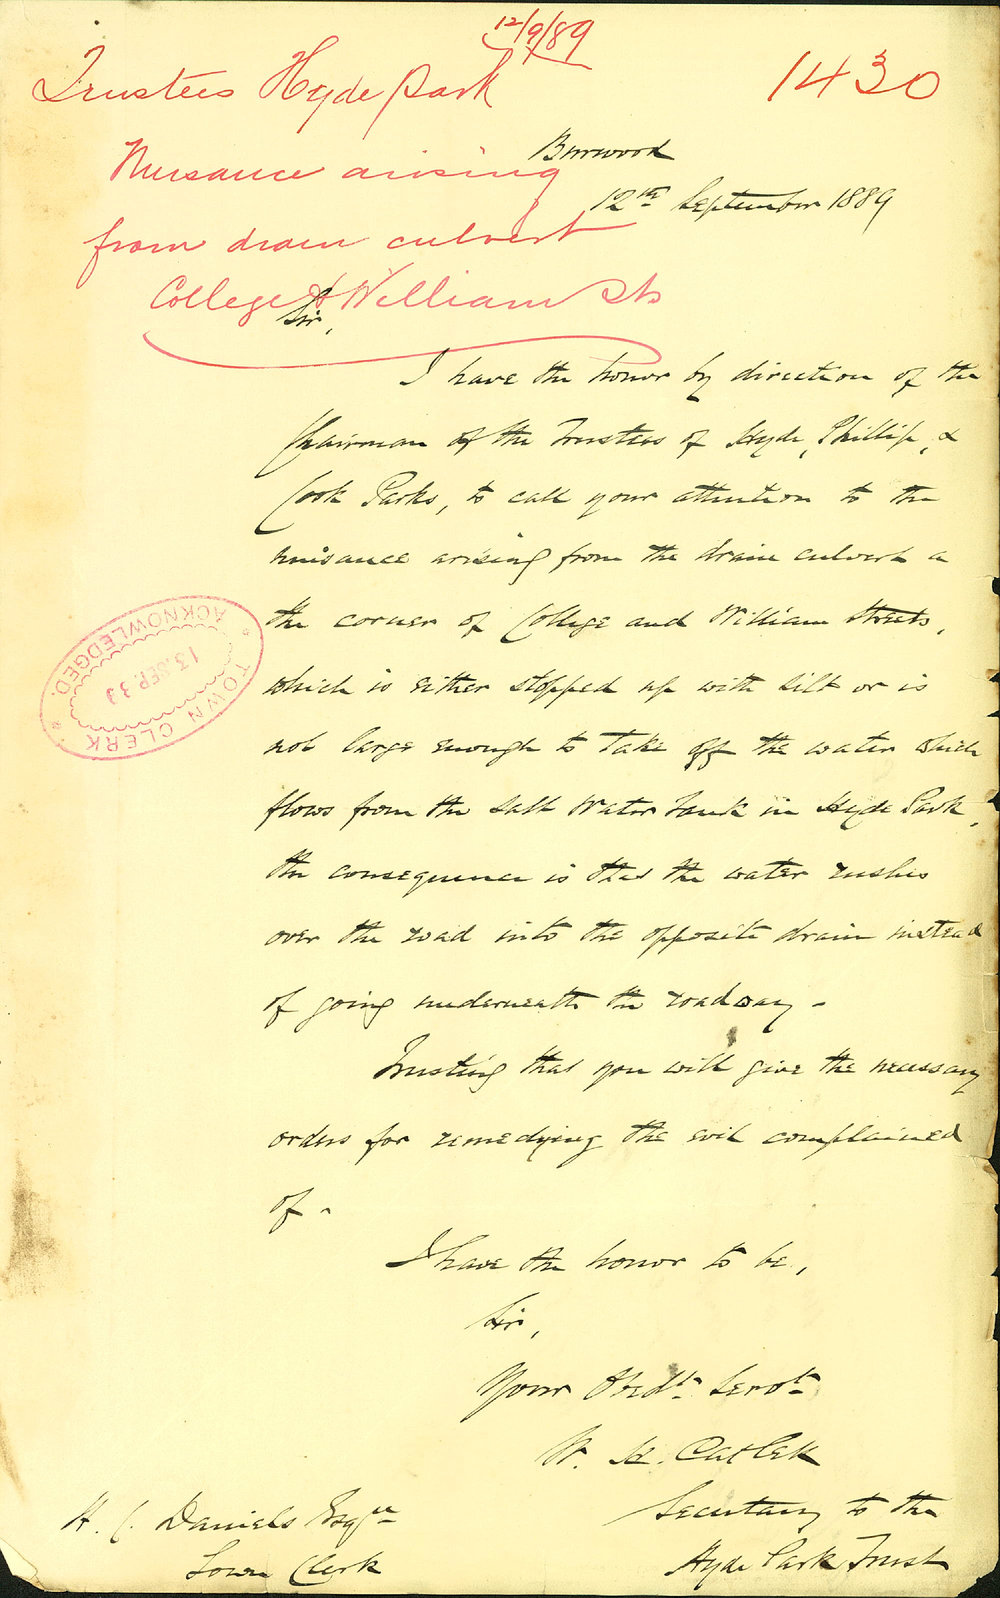 12/9/89
Trustees Hyde Park
1430
Nuisance arising
from drain culvert
College & William Sts
Burwood
12th September 1889
Sir,
I have the honor by direction of the
Chairman of the Trustees of Hyde, Phillip, &
Cook Parks, to call your attention to the
nuisance arising from the drain culvert a
the corner of College and William Streets,
which is either stopped up with silt or is
not large enough to take off the water which
flows from the Salt Water Tank in Hyde Park,
the consequence is that the water rushes
over the road into the opposite drain instead
of going underneath the roadway -
Trusting that you will give the necessary
orders for remedying the evil complained
of -
I have the honor to be,
Sir,
Your Obedt. Servt.
W. H.
Secretary to the
Hyde Park Trust
H. C. Daniels Esqre
Town Clerk
TOWN CLERK
ACKNOWLEDGED.
13 SEP.